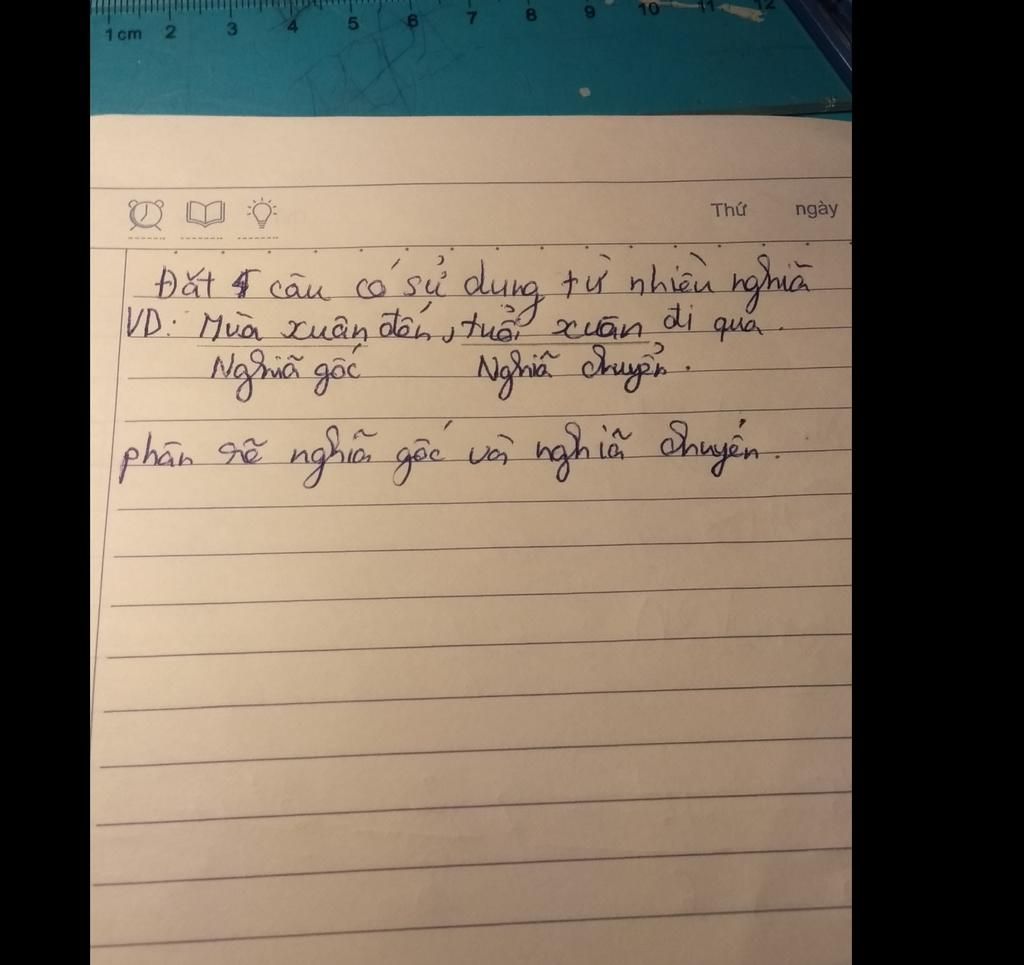 1cm 2 3 4 5 6 7 8 9 10 11 12
Thứ ngày
Đặt câu có sử dụng từ nhiều nghiã
VD: Mùa xuân đến, tuổi xuân đi qua.
Nghiã gốc Nghiã chuyển.
phân rõ nghiã gốc và nghiã chuyển.